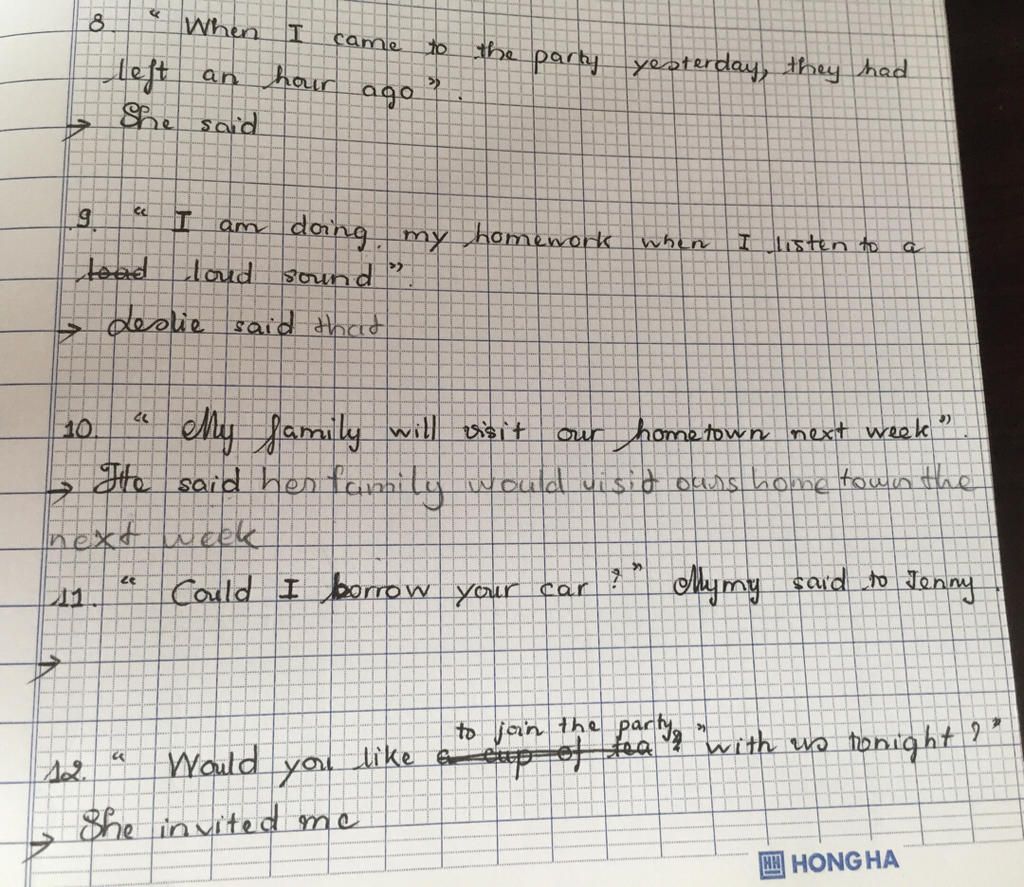 8. “ When I came to the party yesterday, they had
left an hour ago ” .
→ She said
9. “ I am doing my homework when I listen to a
loud sound ” .
→ Leslie said that
10. “ My family will visit our hometown next week ” .
→ He said her family would visit ours home town the
next week
11. “ Could I borrow your car ? ” Mymy said to Jenny .
→
to join the party
12. “ Would you like a cup of tea ? ” with us tonight ? ”
→ She invited me
HH HONG HA